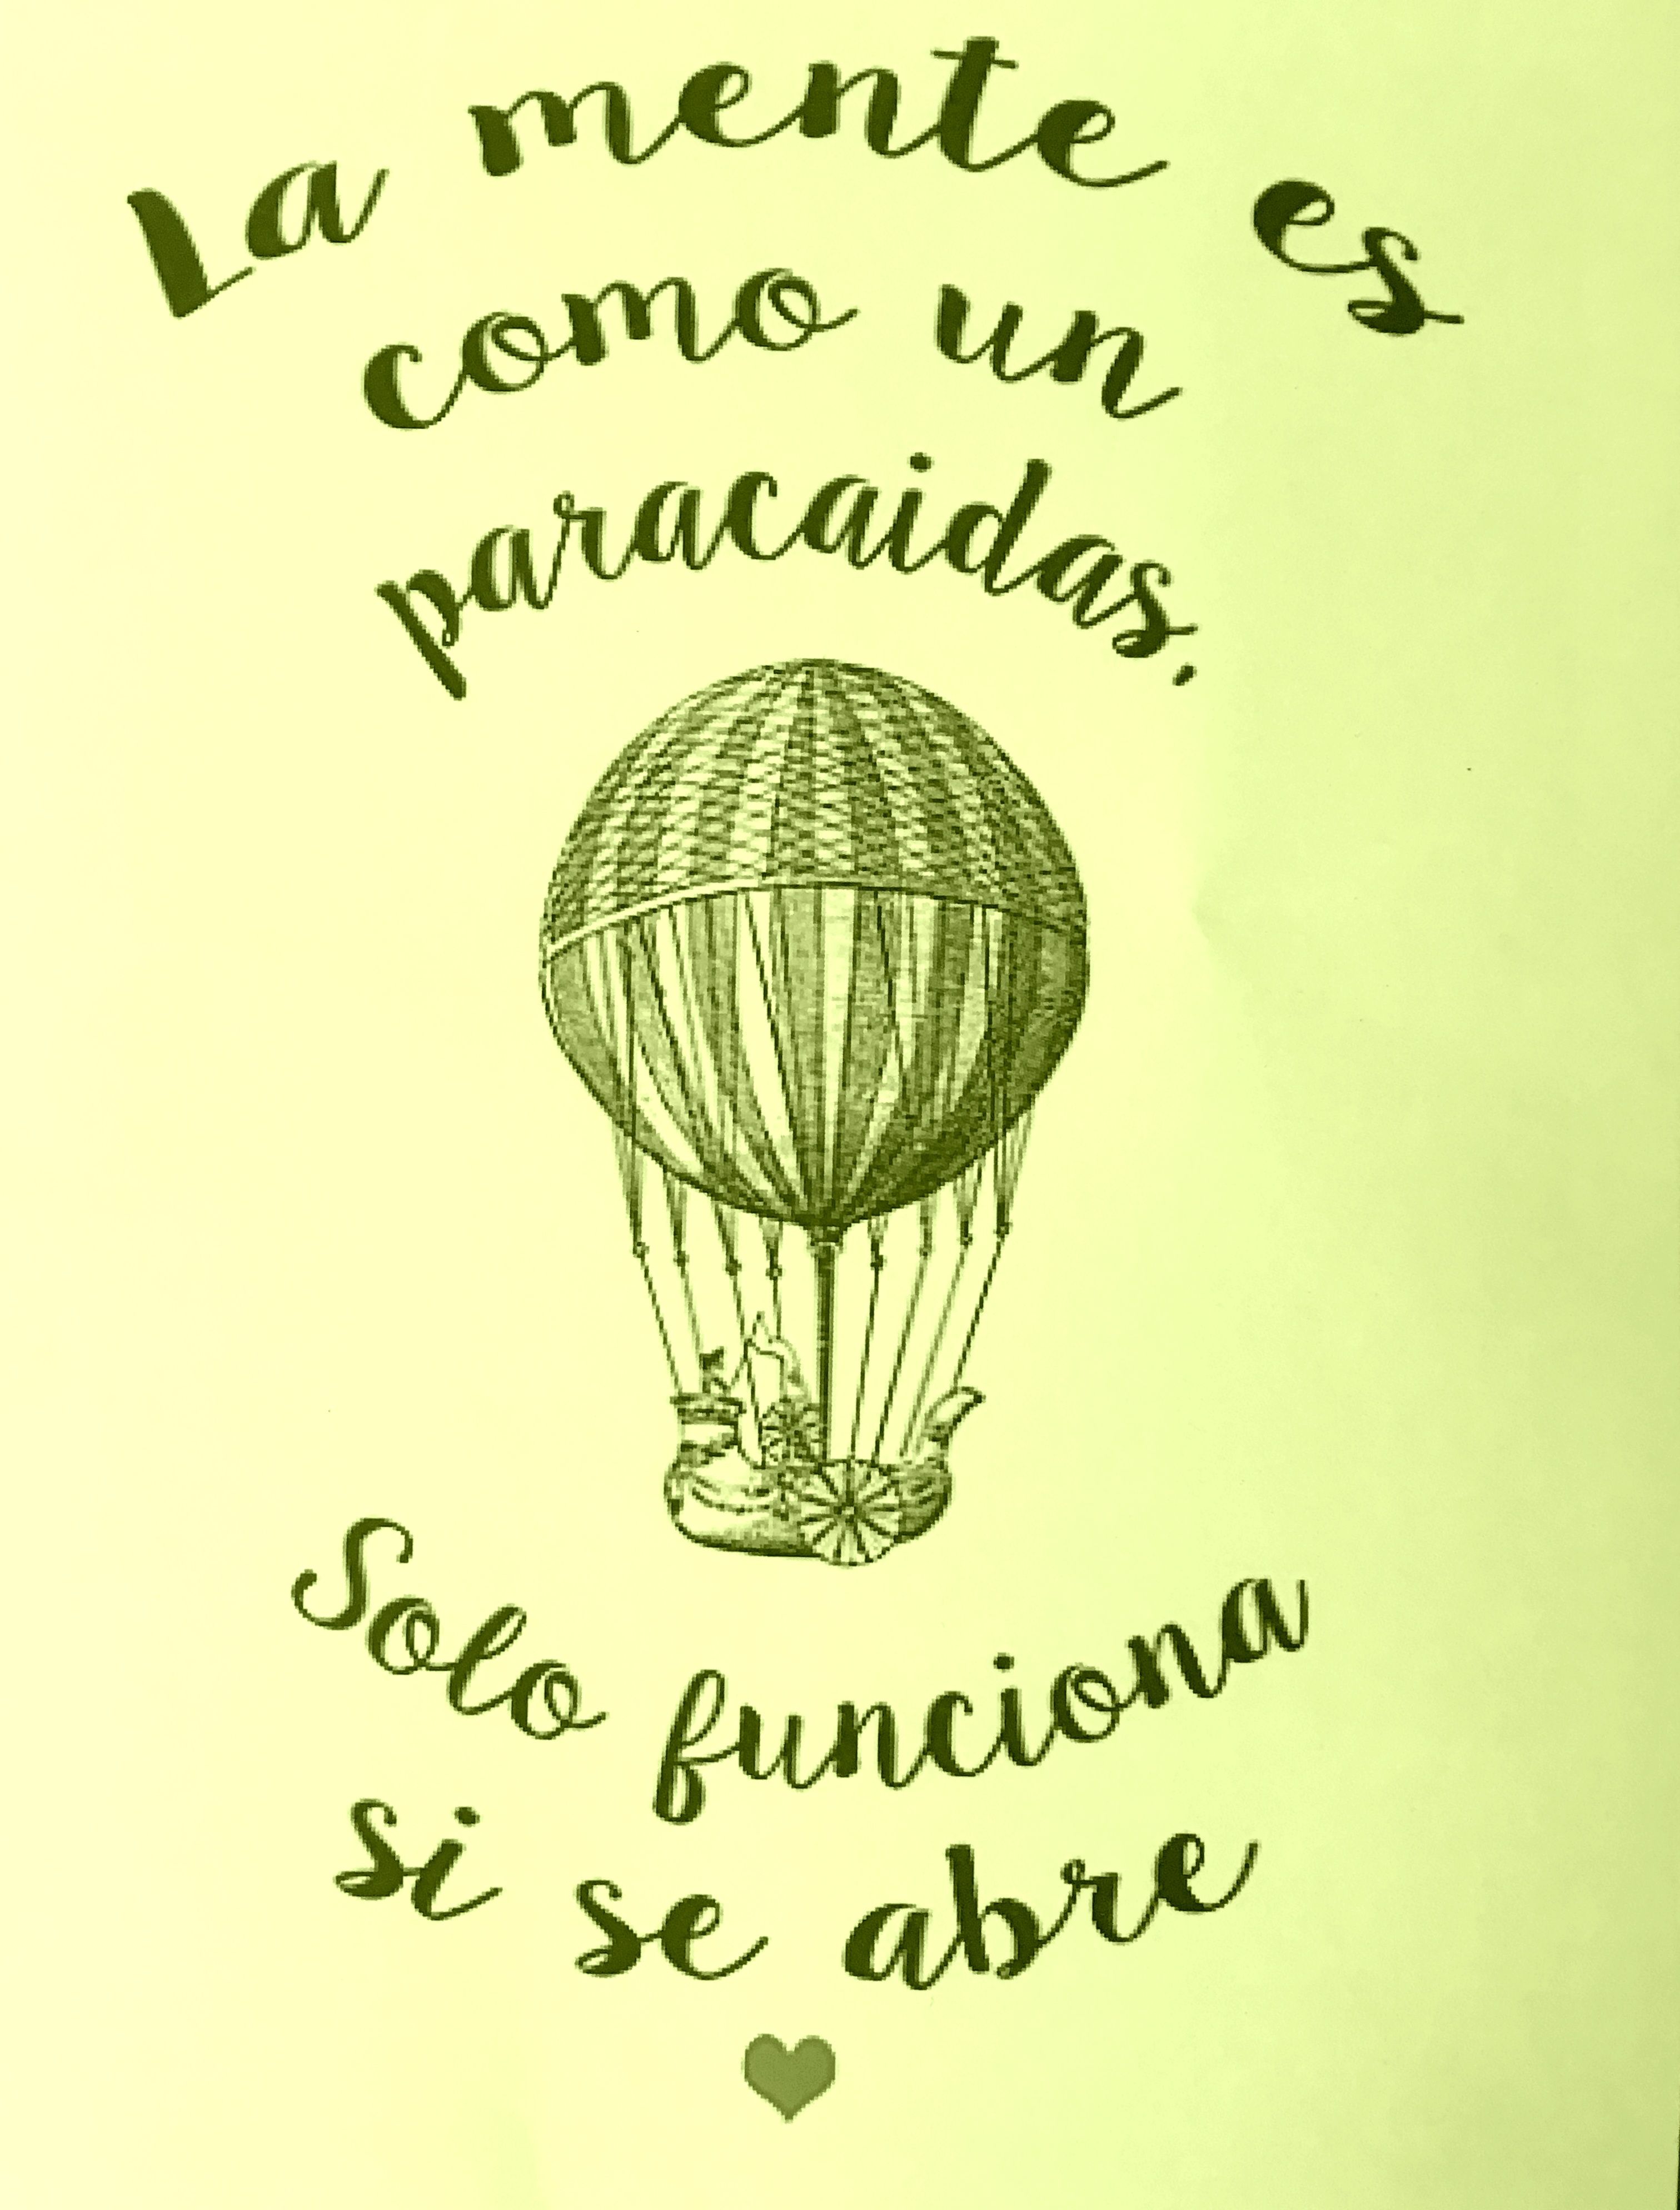 La mente es
como un
paracaidas,
Solo funciona
si se abre